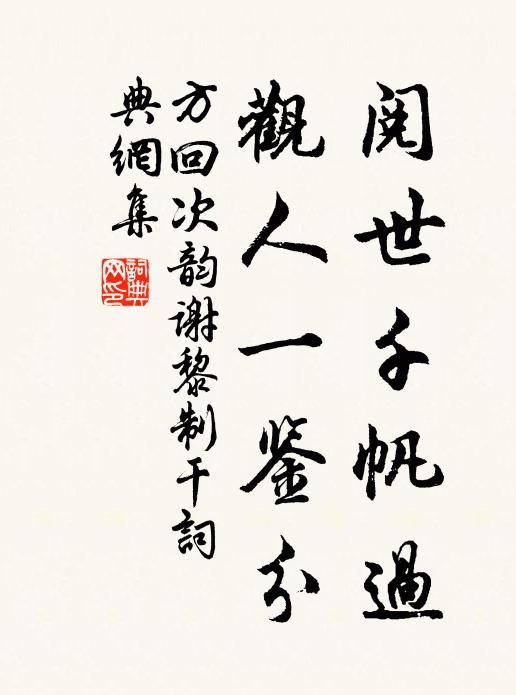 閱世千帆過
觀人一鉴分
方回次韵谢黎制干詞
典網集
詞典网印